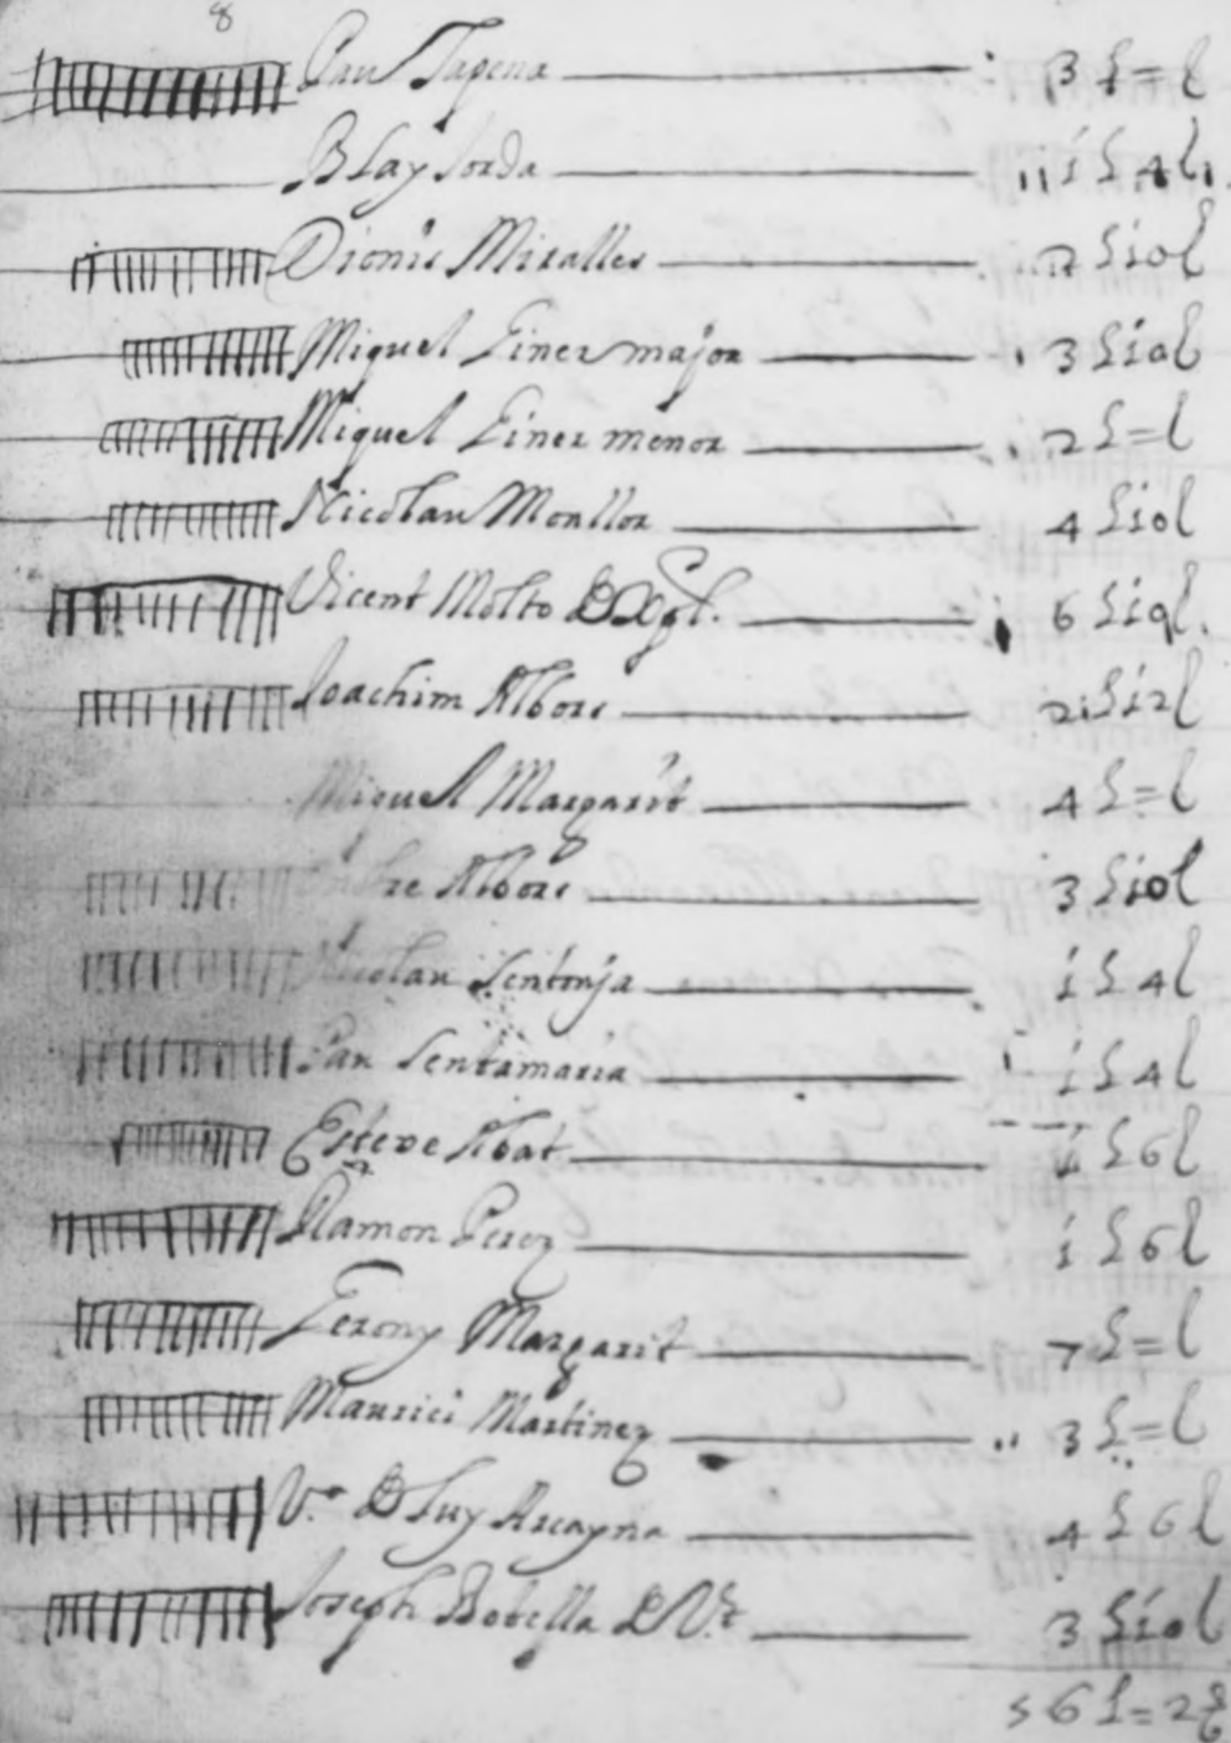 8
Pau Tapena 3 £ = l
Blay Jorda 1 £ 4 l
Dionis Miralles 2 £ 10 l
Miquel Giner major 3 £ 10 l
Miquel Giner menor 2 £ = l
Nicolau Monllor 4 £ 10 l
Vicent Molto D 6 £ 1
Joachim Albors 2 £ 12 l
Miquel Margarit 4 £ = l
Albors 3 £ 10 l
Nicolau Sentonja 1 £ 4 l
Pau Sentamaria 1 £ 4 l
Esteve Abat 1 £ 6 l
Ramon Perez 1 £ 6 l
Gerony Margarit 7 £ = l
Maurici Martinez 3 £ = l
V.ª D Luy Ascayna 4 £ 6 l
Joseph Botella D V.t 3 £ 10 l
56 £ = 2